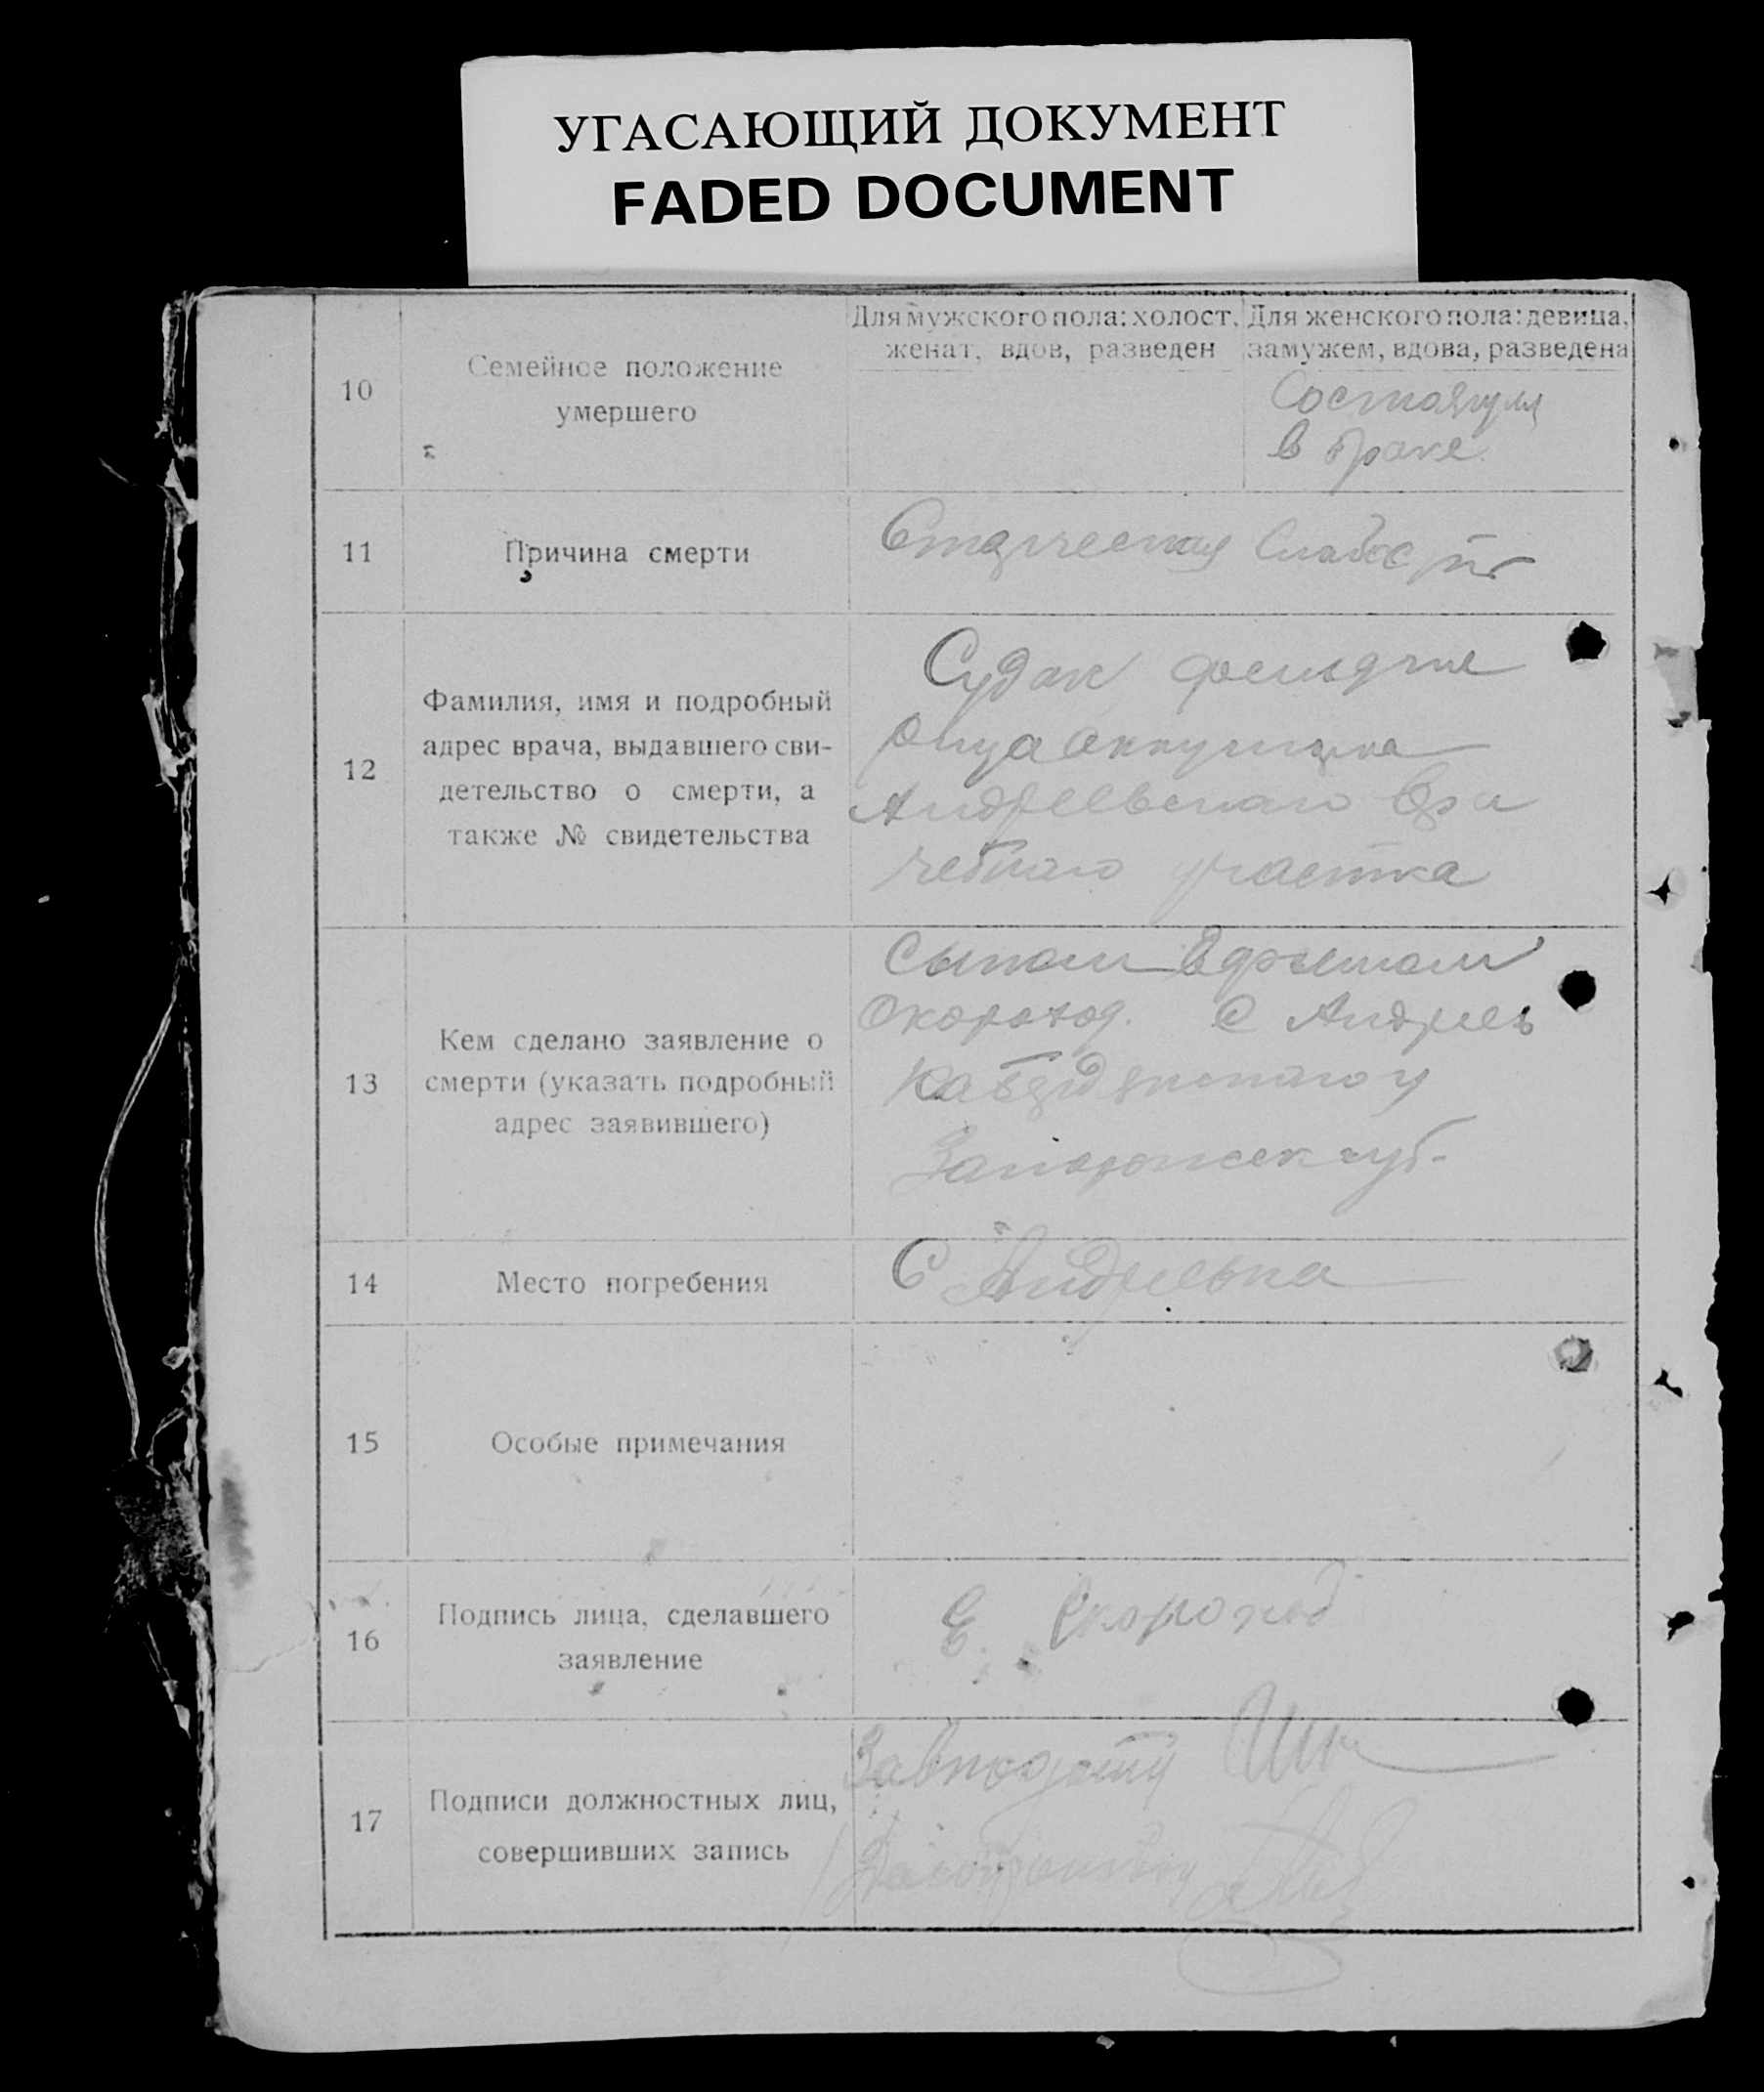 УГАСАЮЩИЙ ДОКУМЕНТ
FADED DOCUMENT
10
Семейное положение
умершего
Для мужского пола: холост,
женат, вдов, разведен
Для женского пола: девица,
замужем, вдова, разведена
Состоящей
в браке
11
Причина смерти
Старческая слабость
12
Фамилия, имя и подробный
адрес врача, выдавшего сви-
детельство о смерти, а
также № свидетельства
Судак
акушерка
Андреевского Вра
чебного участка
13
Кем сделано заявление о
смерти (указать подробный
адрес заявившего)
Сыном
Скороход. С Андреев
Запорожск губ.
14
Место погребения
С Андреевка
15
Особые примечания
16
Подпись лица, сделавшего
заявление
Е. Скороход
17
Подписи должностных лиц,
совершивших запись